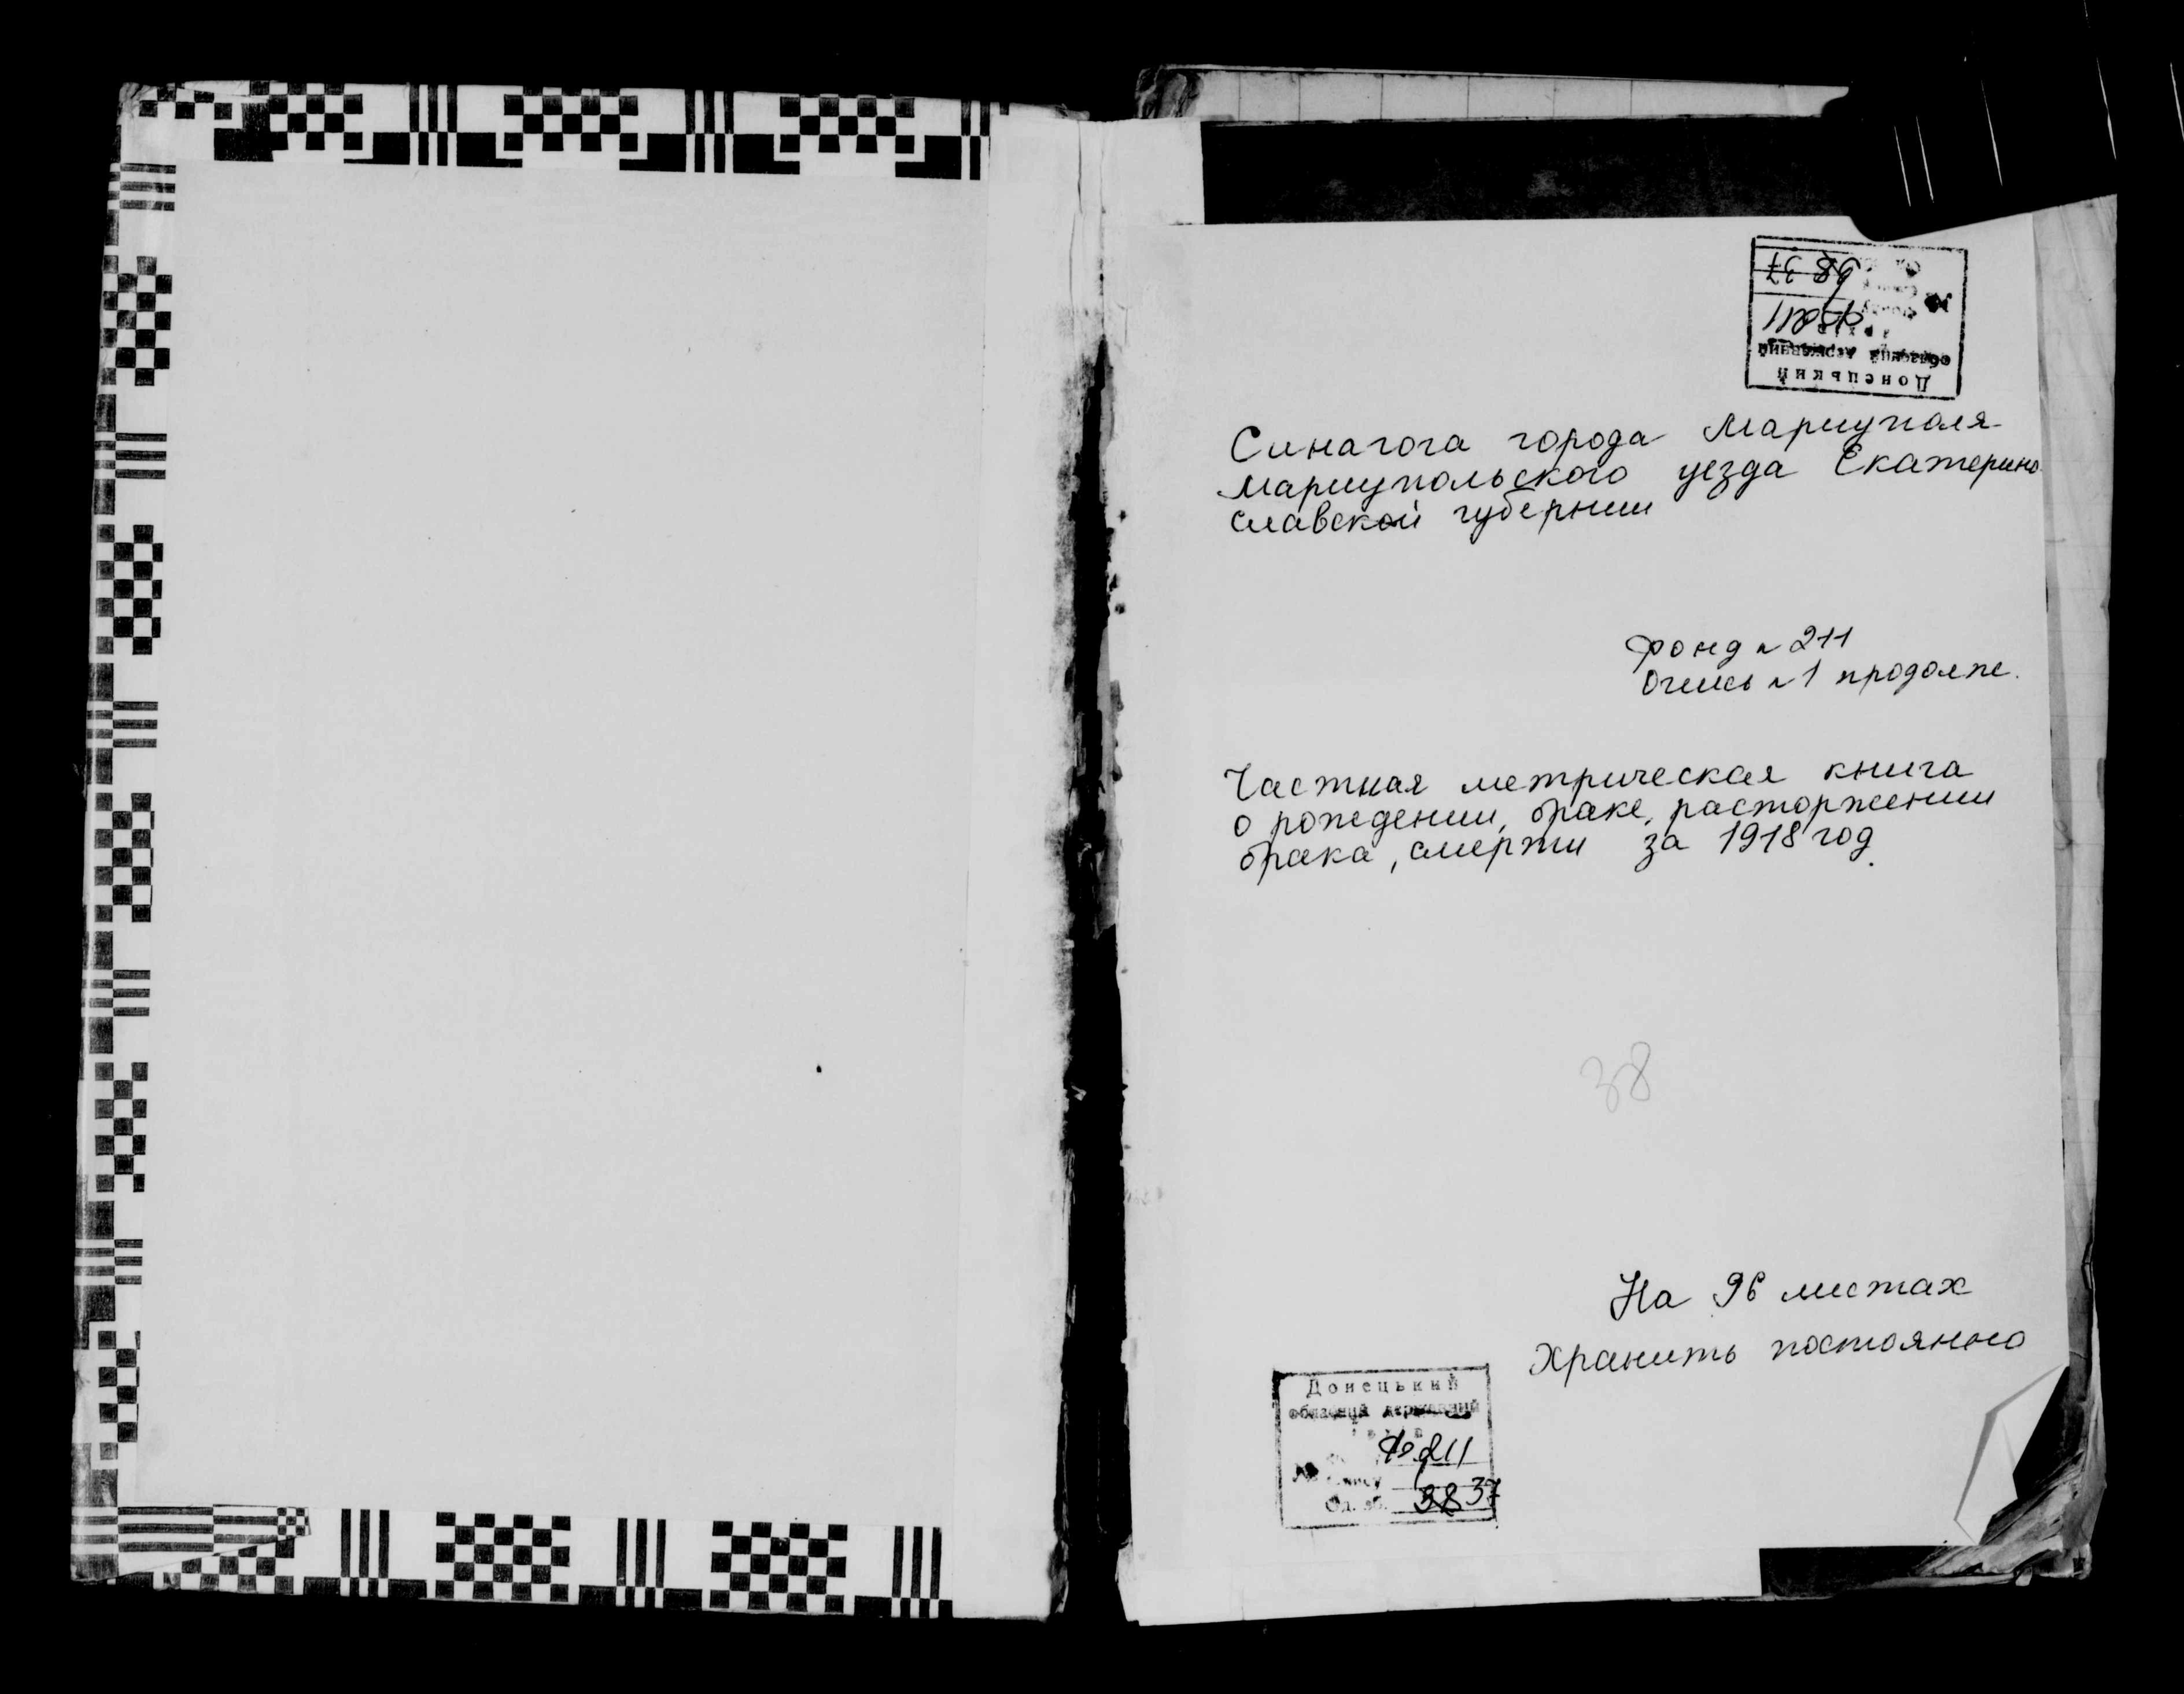 Донецький
обласний державний
211
37
Синагога города Мариуполя
Мариупольского уезда Екатерино
славской губернии
Фонд № 211
Опись № 1 продолж.
Частная метрическая книга
о рождении, браке, расторжении
брака, смерти за 1918 год.
38
На 96 листах
Хранить постоянно
Донецький
обласний державний
архів
№ Ф 211
опису
Од. зб. 38 37